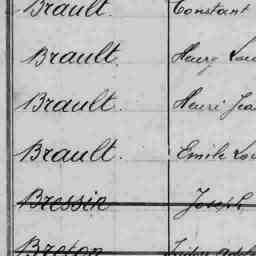 Brault. Constant
Brault. Henry Lou
Brault. Henri Jea
Brault. Emile Lou
Bressin Joseph
Breton